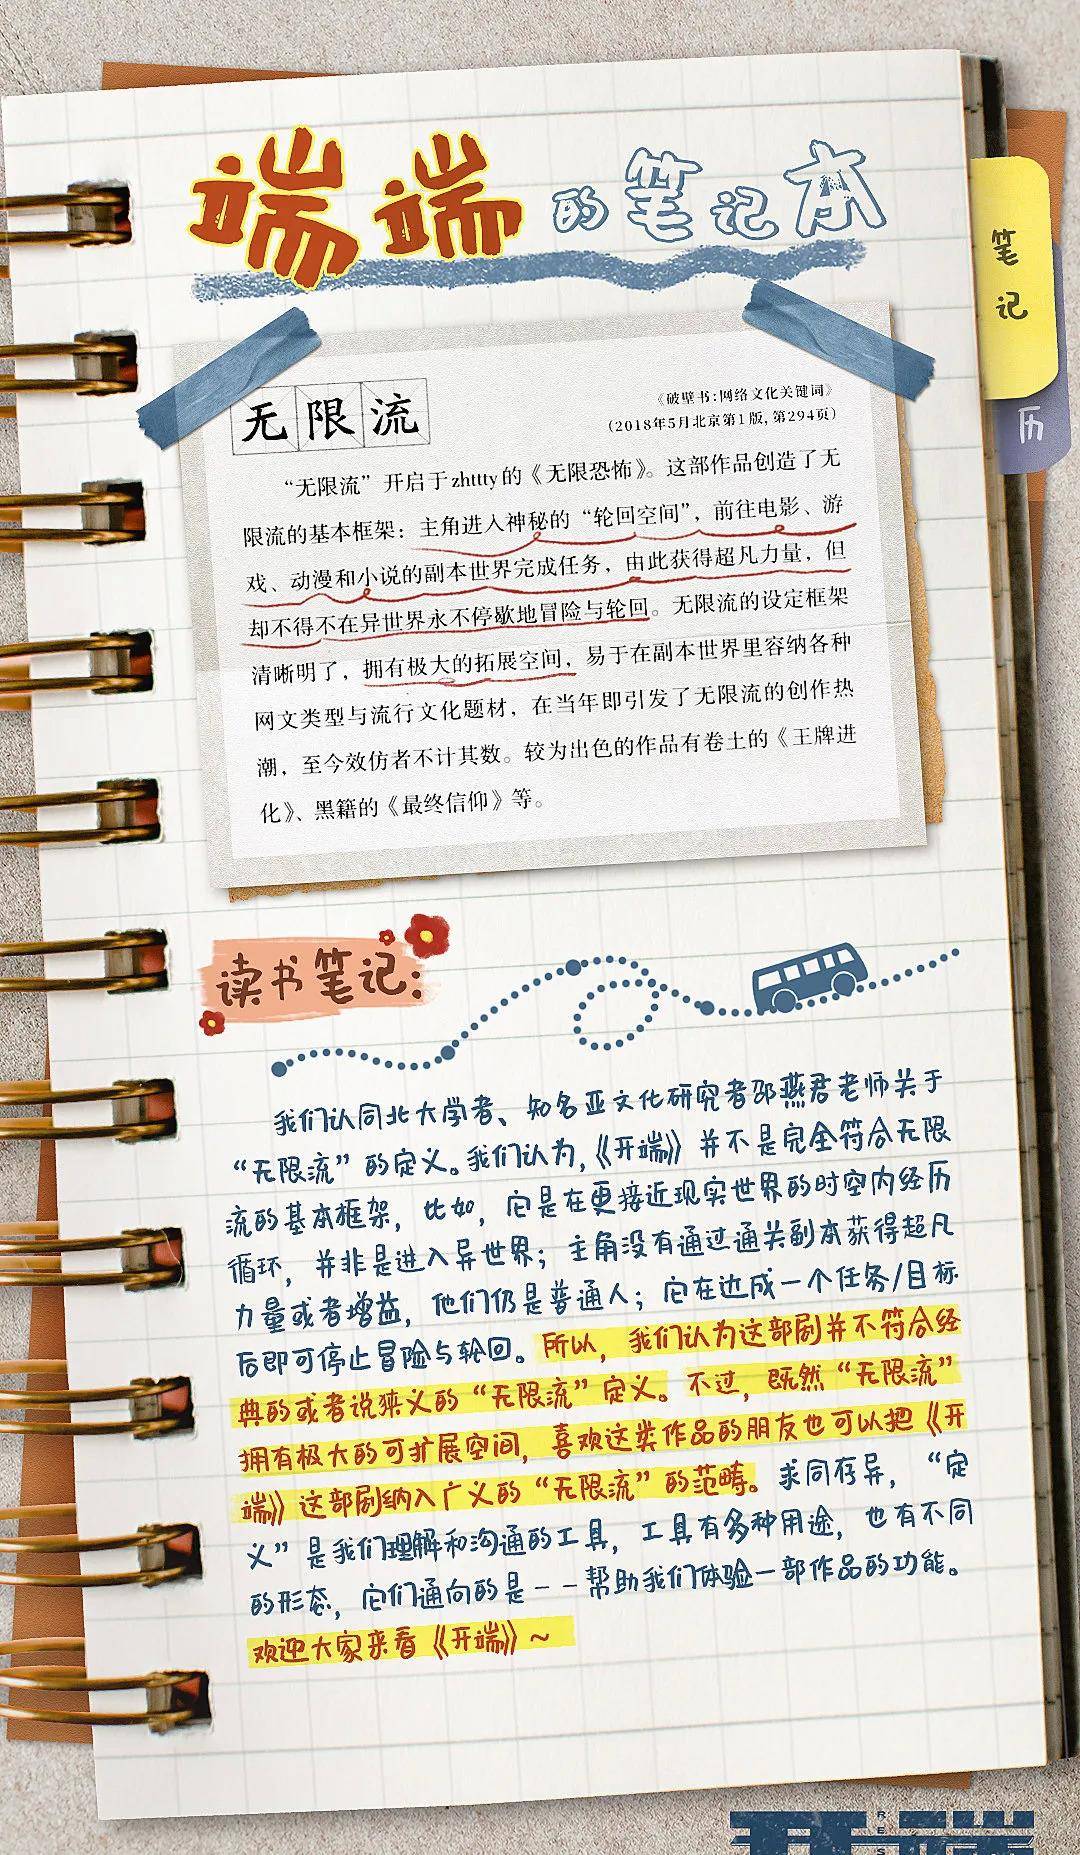 端端的笔记本
笔记
历
无限流
《破壁书:网络文化关键词》
(2018年5月北京第1版,第294页)
“无限流”开启于zhttty的《无限恐怖》。这部作品创造了无
限流的基本框架：主角进入神秘的“轮回空间”，前往电影、游
戏、动漫和小说的副本世界完成任务，由此获得超凡力量，但
却不得不在异世界永不停歇地冒险与轮回。无限流的设定框架
清晰明了，拥有极大的拓展空间，易于在副本世界里容纳各种
网文类型与流行文化题材，在当年即引发了无限流的创作热
潮，至今效仿者不计其数。较为出色的作品有卷土的《王牌进
化》、黑籍的《最终信仰》等。
读书笔记：
我们认同北大学者、知名亚文化研究者邵燕君老师关于
“无限流”的定义。我们认为,《开端》并不是完全符合无限
流的基本框架，比如，它是在更接近现实世界的时空内经历
循环，并非是进入异世界；主角没有通过通关副本获得超凡
力量或者增益，他们仍是普通人；它在达成一个任务/目标
后即可停止冒险与轮回。所以，我们认为这部剧并不符合经
典的或者说狭义的“无限流”定义。不过，既然“无限流”
拥有极大的可扩展空间，喜欢这类作品的朋友也可以把《开
端》这部剧纳入广义的“无限流”的范畴。求同存异，“定
义”是我们理解和沟通的工具，工具有多种用途，也有不同
的形态，它们通向的是--帮助我们体验一部作品的功能。
欢迎大家来看《开端》~
开端
RES